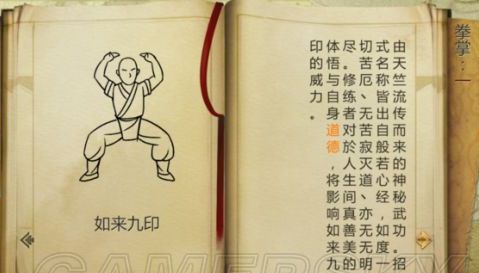 如来九印
拳掌：一
由天竺流传而来的神秘武功。招
式名称皆出自般若心经、如度一
切苦厄、无苦寂灭道、亦无无明
尽。修练者对於人生间真善美的
体悟与自身道德，将影响如来九
印的威力。
GAMERSKY